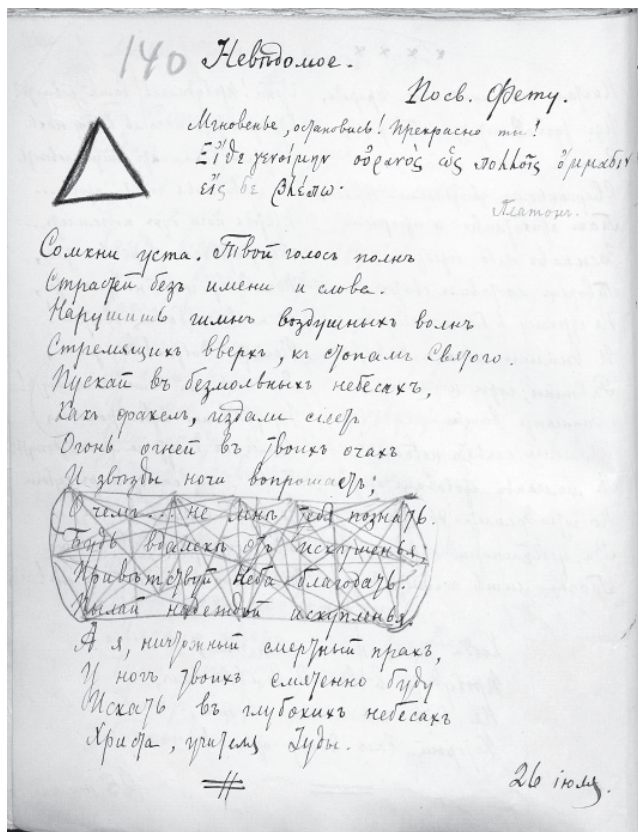 140 Невѣдомое.
Посв. Фету.
Мгновенье, остановись! Прекрасно ты!
Εἴθε γενοίμην οὐρανὸς ὡς πολλοῖς ὄμμασιν
εἰς σε βλέπω.
Платонъ.
Сомкни уста. Твой голосъ полнъ
Страстей безъ имени и слова.
Нарушишь гимнъ воздушныхъ волнъ
Стремящихъ вверхъ, къ стопамъ Святого.
Пускай въ безмолвныхъ небесахъ,
Какъ факелъ, издали сіяетъ
Огонь огней въ твоихъ очахъ
И звѣзды ночи вопрошаетъ;
О чемъ... не мнѣ тебя познать.
Будь вдалекѣ отъ искушенья,
Привѣтствуй Неба благодать.
Пылай надеждой искупленья.
А я, ничтожный смертный прахъ,
У ногъ твоихъ смятенно буду
Искать въ глубокихъ небесахъ
Христа, учителя Іуды.
26 іюля.